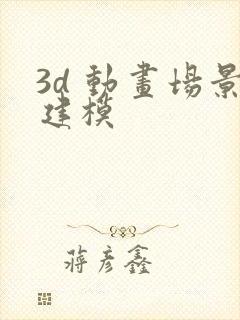 3d 動畫場景
建模
蔣彥鑫